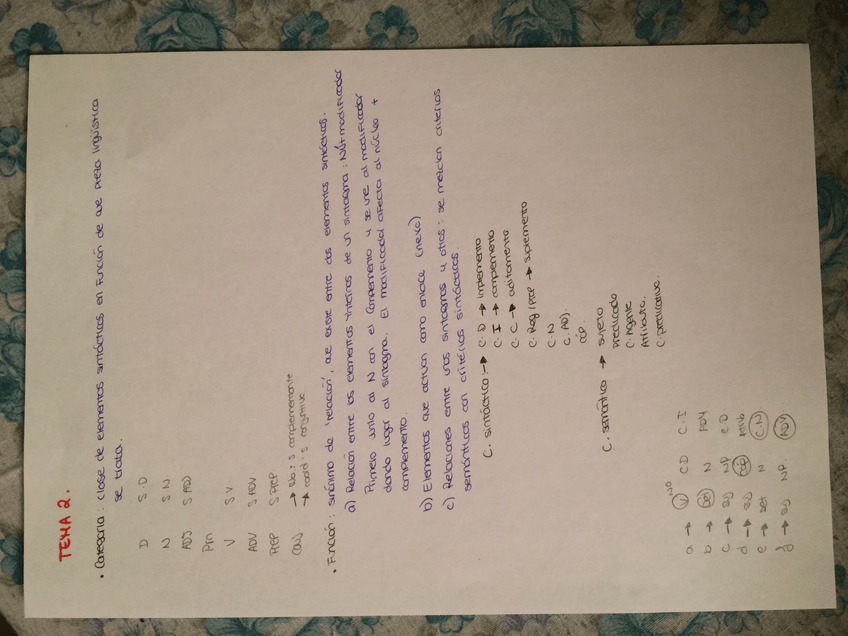 TEMA 2.
• Categoría : clase de elementos sintácticos en función de que pieza lingüística
se trata.
D S.D
N S N
ADJ S ADJ
Prn
V S V.
ADV S ADV.
PREP S PREP
CONJ → sub : s complemente
→ coord : s conjuntivo
• Función : sinónimo de 'relación', que existe entre dos elementos sintácticos.
a) Relación entre los elementos internos de un sintagma : N + modificador
Primero unito al N con el Complemento y se une al modificador
dando lugar al sintagma. El modificador afecta al núcleo +
complemento.
b) Elementos que actúan como enlace (nexo)
c) Relaciones entre unos sintagmas y otros : se mezclan criterios
semánticos con criterios sintácticos.
C. sintáctico : → C. D → implemento
C. I → complemento
C. C → aditamento
C. Reg / prep → suplemento
C. N
C. ADJ.
COP.
C. semántico → sujeto
predicado
C. Agente
Atributo.
C. predicativo.
NO
a → V CD C. I
b → Det N MDV
c → Suj NP C.D
d → Suj COP Atrib
e → Det N C.N
f → Suj N.P. ADV